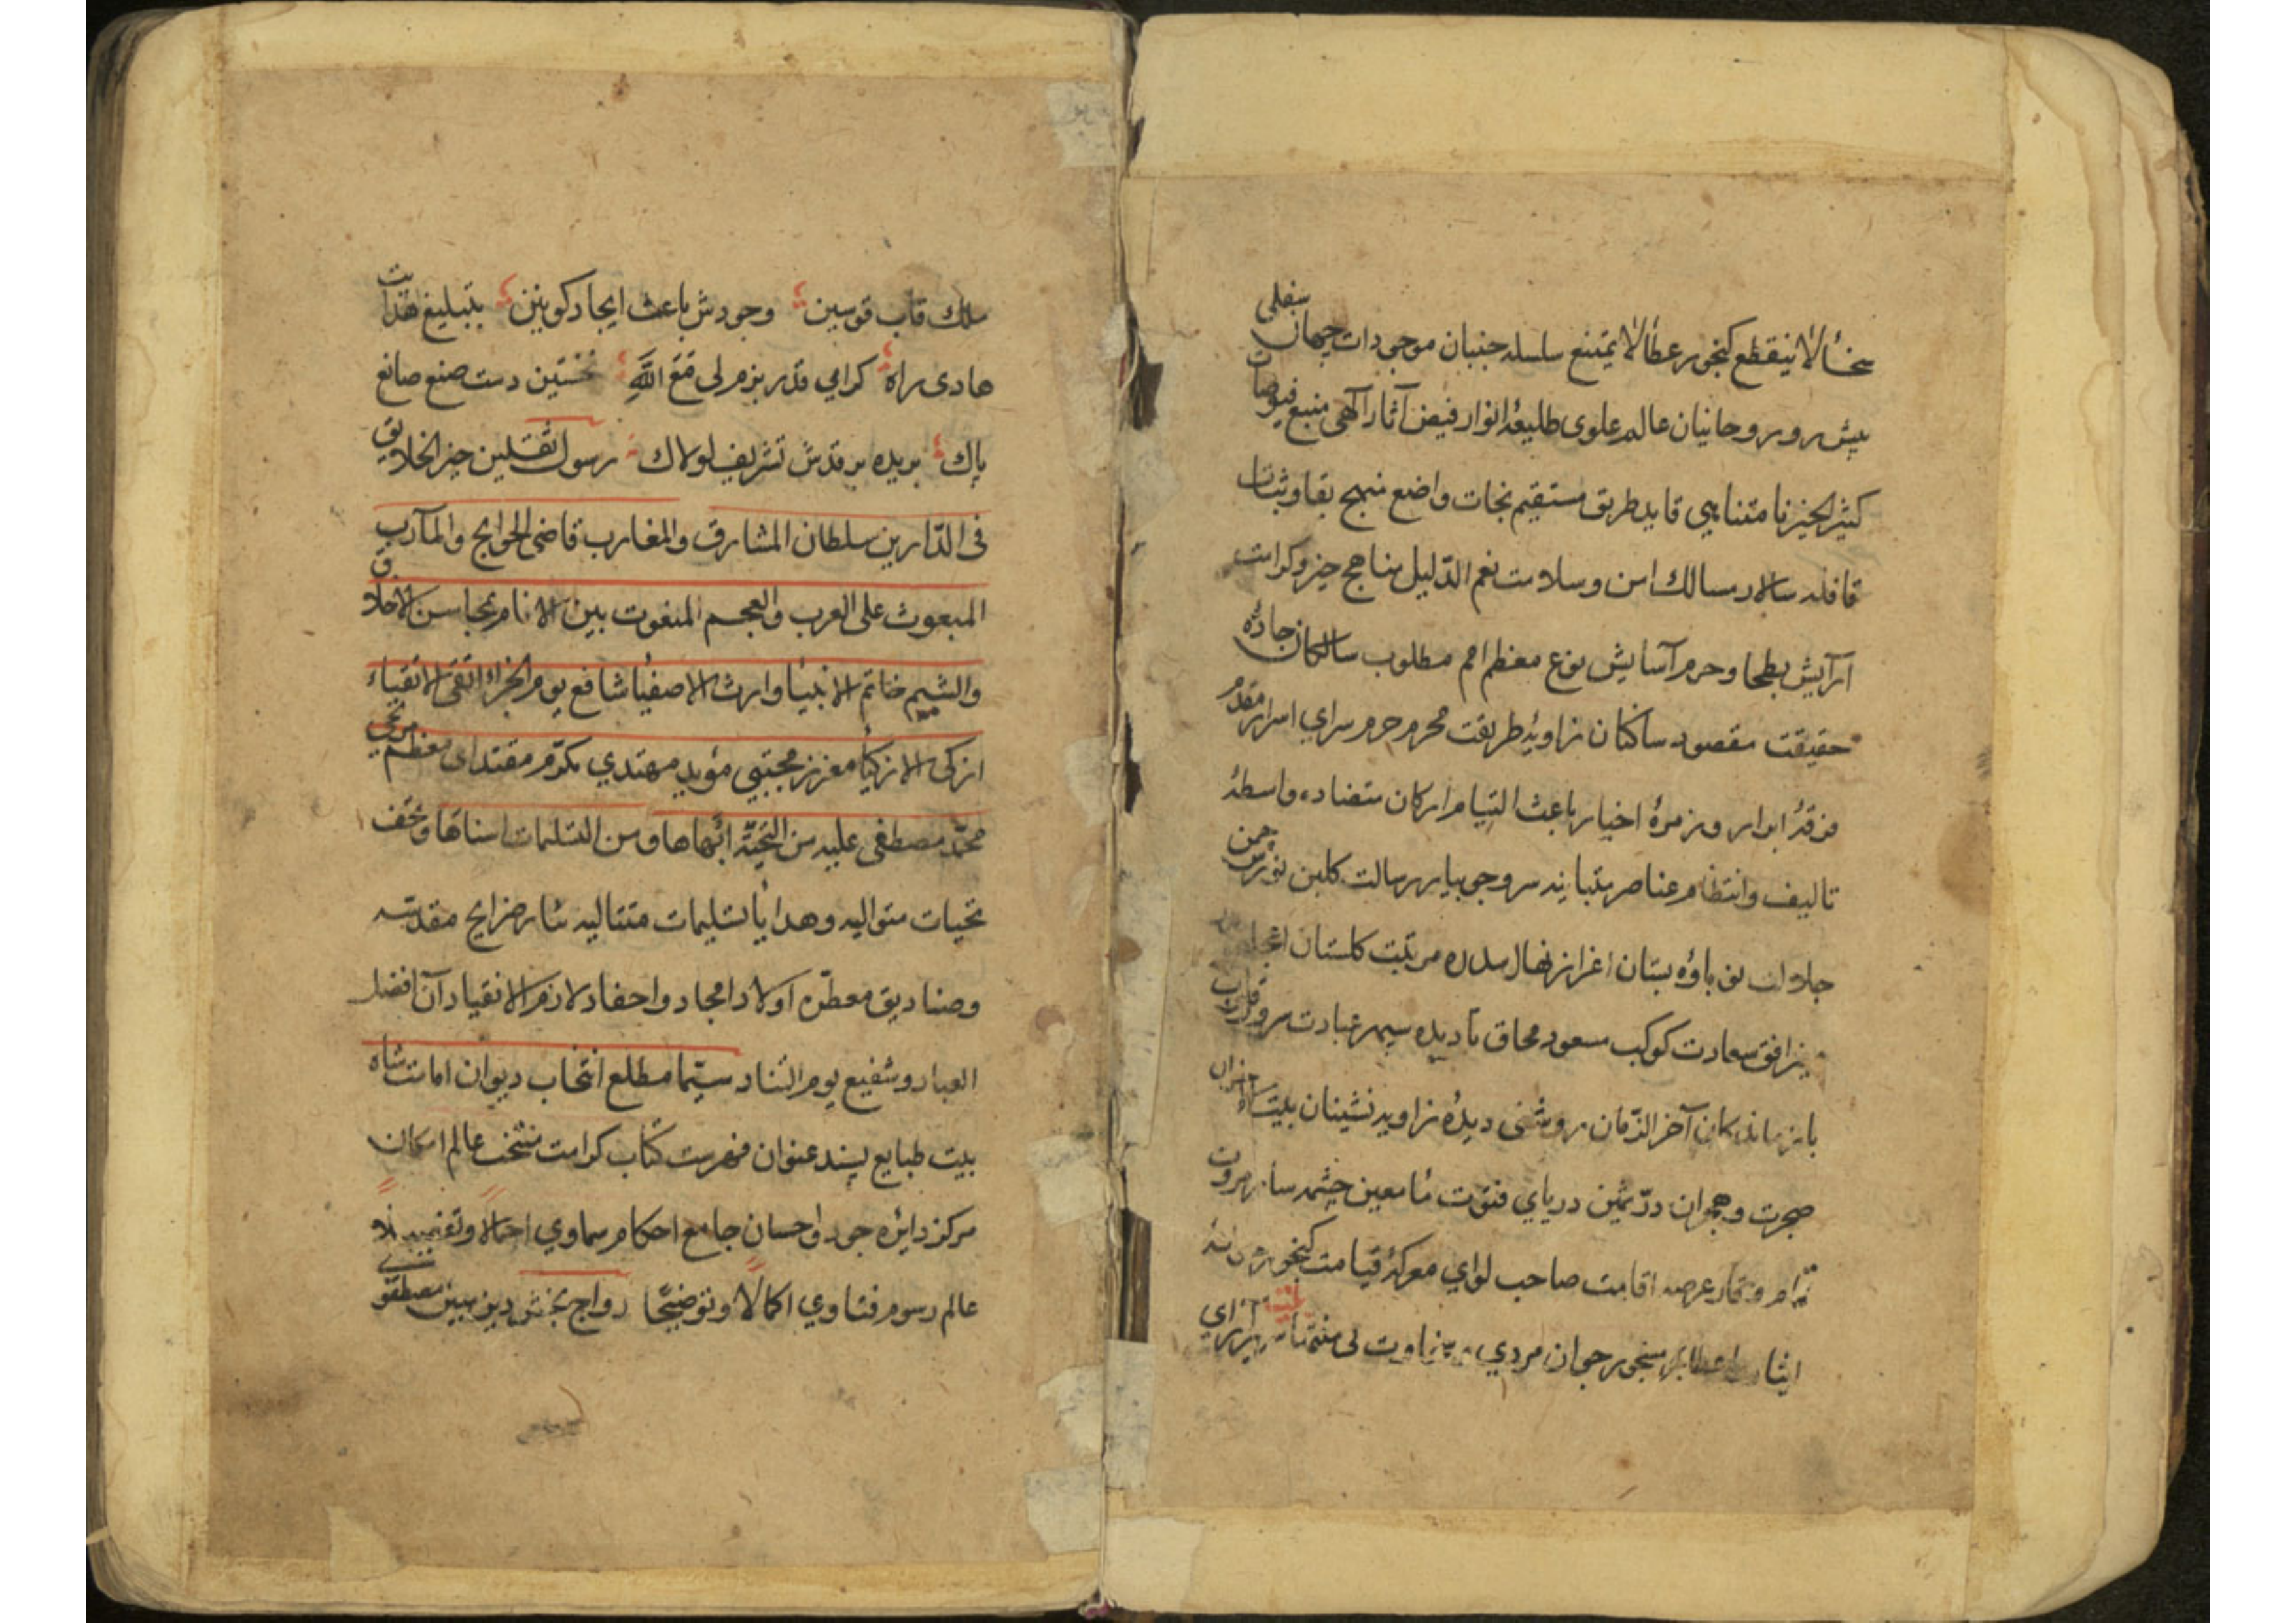 سخائالا ینقطع کنجور عطائالا یمتنع سلسله جنبان موجودات جهان سفلی
پیش رو روحانیان عالم علوی طلیعهٔ انوار فیض آثار آلهی منبع فیوضات
کثیر الخیر نا متناهی قاید طریق مستقیم نجات واضع منهج بقا و ثبات
قافله سالار مسالك امن و سلامت نعم الدّلیل مناهج خیر و کرامت
آرایش بطحا و حرم آسایش نوع معظم امم مطلوب سالکان جادهٔ
حقیقت مقصود ساکنان زاویهٔ طریقت محرم حرم سرای اسرار مقدم
فرقهٔ ابرار و زمرهٔ اخیار باعث التیام ارکان متضاده واسطهٔ
تالیف و انتظام عناصر متباینه سر و جویبار رسالت کلبن نورس چمن
جلالت نو باوهٔ بستان اعزاز نهال سدره مرتبت کلستان
نیر افق سعادت کوکب مسعود محاق نادیده سپهر عبادت سرو
باز ماندکان آخر الزّمان روشنی دیدهٔ زاویه نشینان بیت
هجرت و هجران درّ ثمین دریای فتوّت ماء معین چشمه سار مروت
و قار عرصه اقامت صاحب لوای معرکهٔ قیامت کنجور
ایثار جوان مردی
ملك قاب قوسین وجودش باعث ایجاد کونین بتبلیغ هدایت
هادی راه کرامی قدر بزم لی مَعَ اللّٰهِ نخستین دست صنع صانع
پاك بریده بر قدش تشریف لولاك رسول الثقلین خیر الخلایق
فی الدّارین سلطان المشارق والمغارب قاضی الحوایج والمآرب
المبعوث علی العرب والعجم المنعوت بین الانام بمحاسن الاخلاق
والشیم خاتم الانبیا وارث الاصفیا شافع یوم الجزاء اتقی الاتقیاء
ازکی الازکیا معزز مجتبی مؤید مهتدی مکرّم مقتدای معظم مرتجی
محمّد مصطفی علیه من التحیّة ابهاها و من التسلیمات اسناها و تحف
تحیات متوالیه و هدایا تسلیمات متتالیه نثار ضرایح مقدسه
و صنادیق معطّره اولاد امجاد و احفاد لازم الانقیاد آن افضل
العباد و شفیع یوم التناد سیّما مطلع انتخاب دیوان امامت شاه
بیت طبایع پسند عنوان فهرست کتاب کرامت منتخب عالم امکان
مرکز دایره جود و احسان جامع احکام سماوی اجمالا و تفصیلا
عالم رسوم فتاوی اکمالا و توضیحًا رواج بخش دین مبین مصطفوی